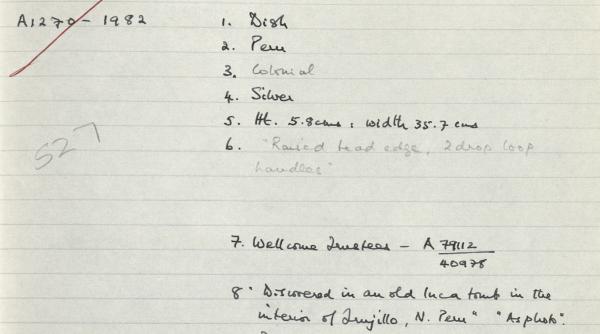 A1270 - 1982
1. Dish
2. Peru
3. Colonial
4. Silver
5. Ht. 5.8cms : width 35.7 cms
6. "Raised bead edge, 2 drop loop
handles"
527
7. Wellcome Trustees - A 79112
40978
8. Discovered in an old Inca tomb in the
interior of Trujillo, N. Peru" "As photo".